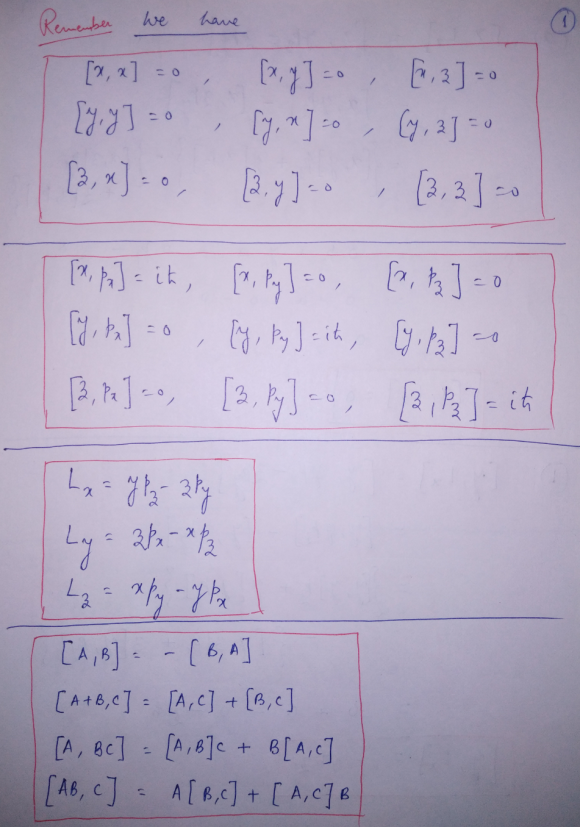 Remember We have ①
[x, x] = 0 , [x, y] = 0 , [x, z] = 0
[y, y] = 0 , [y, x] = 0 , [y, z] = 0
[z, x] = 0, [z, y] = 0 , [z, z] = 0
[x, pₓ] = iħ, [x, p_y] = 0, [x, p_z] = 0
[y, pₓ] = 0 , [y, p_y] = iħ, [y, p_z] = 0
[z, pₓ] = 0, [z, p_y] = 0, [z, p_z] = iħ
Lₓ = yp_z - zp_y
L_y = zpₓ - xp_z
L_z = xp_y - ypₓ
[A, B] = - [B, A]
[A+B, C] = [A, C] + [B, C]
[A, BC] = [A, B]C + B[A, C]
[AB, C] = A[B, C] + [A, C]B